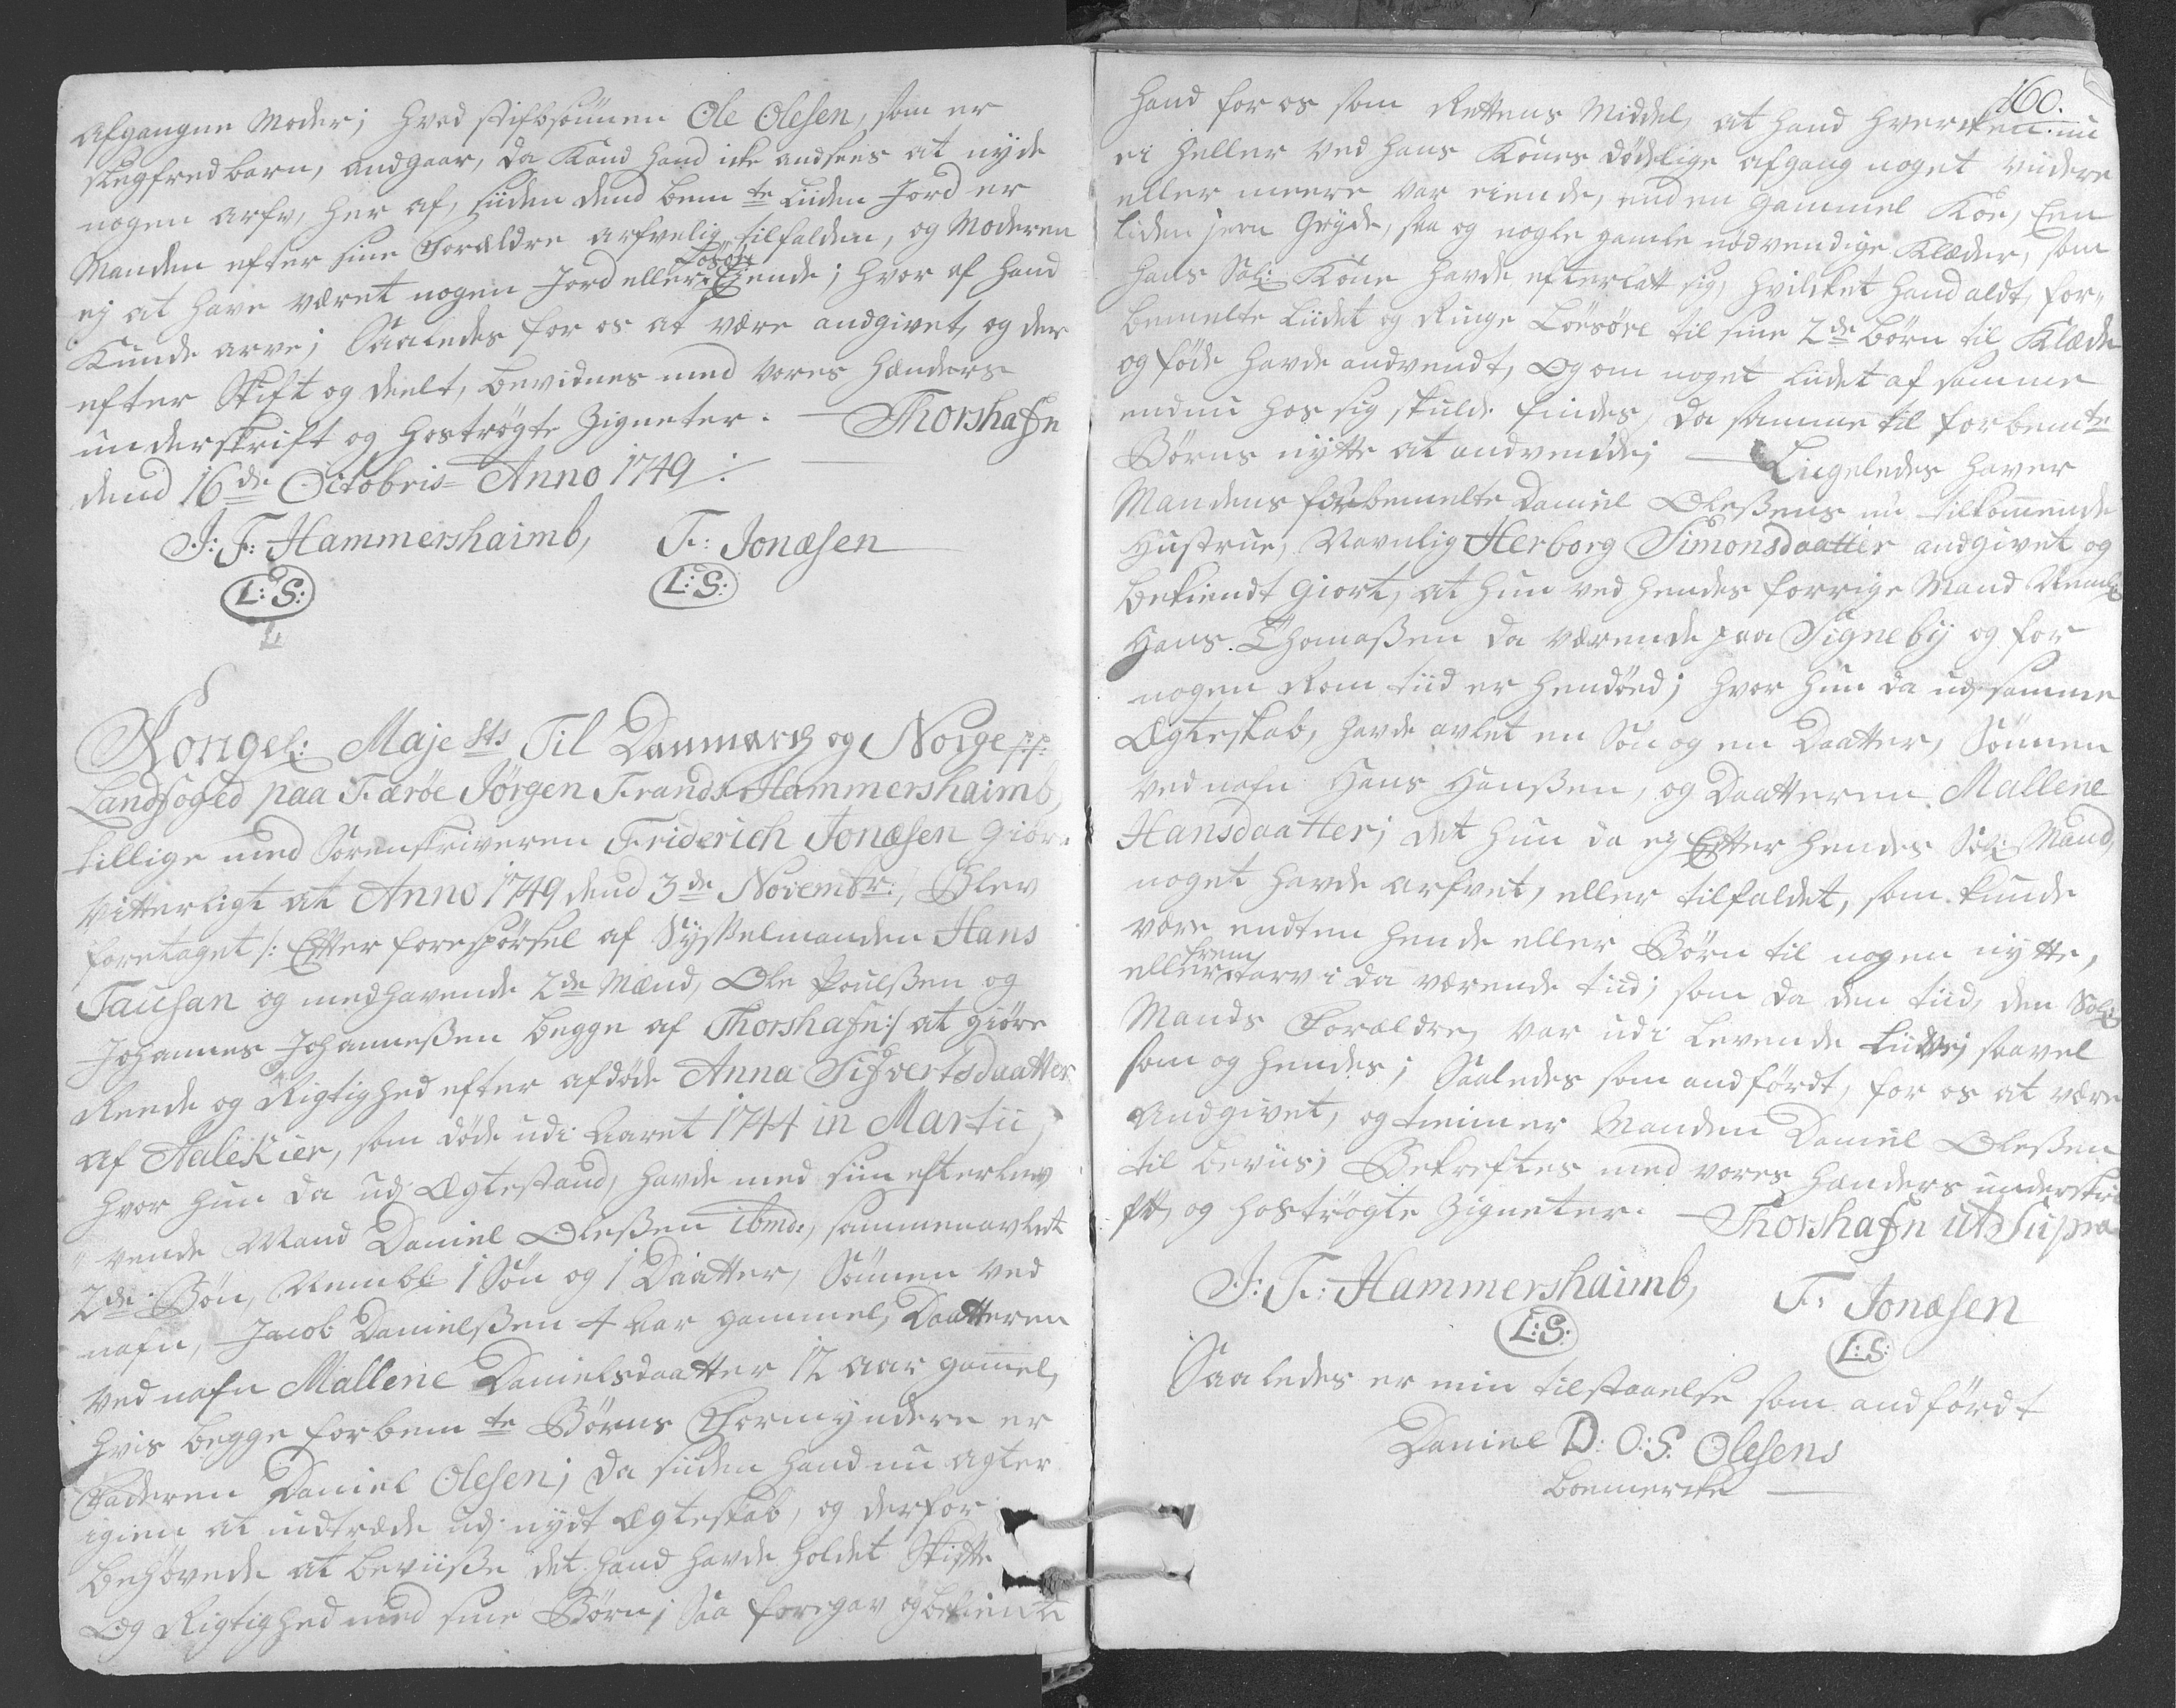 Afgangne Moder; hvad Stifsönnen Ole Olesen, som er
slegfred barn, andgaar, da kand hand icke andsees at nyde
nogen arfv, her af, siiden dend bem te Liiden Jord er
Manden efter sine Forældre arfvelig tilfalden, og Moderen
ej at have været nogen Jord eller Losöre Ejende; hvor af hand
kunde arve; Saaledes for os at være andgivet, og der
efter Skift og deelt, bevidnes med vores hænders
underskrift og hoströgte Zigneter. Thorshafn
dend 16de Octobris Anno 1749 /.
J: F: Hammershaimb, F: Jonæsen
L: S: L: S:
Kongel: Majests Til Danmarck og Norge pp:
Landfoged paa Færöe Jörgen Frands Hammershaimb,
tillige med Sorenskriveren Friderich Jonæsen giör
Vitterligt at Anno 1749 dend 3de Novembr:, Blev
foretaget /: Efter forespörsel af Sysselmanden Hans
Tausan og medhavende 2de Mænd, Ole Poulßen og
Johannes Johannesßen begge af Thorshafn:/ at giöre
Reede og Rigtighed efter afdöde Anna Sifvertsdaatter
af Aalekier, som döde udi Aaret 1744 in Martii,
hvor hun da udj Ægtestand, havde med siin efterlev
" vende Mand Daniel Olesßen ibmd:, sammenavlet
2de Börn, Nembl: 1 Sön og 1 Daatter, Sönnen ved
nafn, Jacob Danielsßen 4 Aar gammel, Daatteren
ved nafn Mallene Danielsdaatter 12 Aar gamel,
hvis begge forbem te Börns Formyndere er
Faderen Daniel Olesen; da siiden hand nu agter
igien at indtræde udj nydt Ægteskab, og derfor
behövede at beviiße det hand havde holdet Skifte
Og Rigtighed med sine Börn; Saa foregav og bekiendte
160.
hand for os som Rettens Middel, at hand hvercken nu
ei heller ved hans Kones dödelige afgang noget viidere
eller meere var eiende, end en gammel Koe, Een
liden jern Gryde, saa og nogle gamle nödvendige Klæder, som
hans Sal: Kone havde efterlatt sig, hvilcket hand aldt, for„
bemelte liidet og Ringe Loesöre til sine 2de börn til Klæde
og föde havde andvendt, Og om noget liidet af samme
endnu hos sig skulde findes, da samme til forbemte
Börns nytte at andvende; Liigeledes haver
Mandens forbemelte Daniel Olesßens nu tilkomende
Hustrue, Navnlig Herborg Simonsdaatter andgivet og
bekiendt giort, at hun ved hendes forrige Mand Neml:
Hans Thomasßen da værende paa Signebÿ og for
nogen Rom tiid er hendöed; hvor hun da udj samme
Ægteskab, havde avlet en Sön og en Daatter, Sönnen
ved nafn Hans Hansßen, og Daatteren Mallene
Hansdaatter; det hun da ej Efter hendes Sal: Mand,
noget havde arfvet, eller tilfaldet, som kunde
være endten hende eller Börn til nogen nytte,
eller frem tarv i da værende tiid; som da den tiid, den Sal:
Mands Forældre, var udi Levende Live, saavel
som og hendes; Saaledes som andfördt, for os at være
Andgivet, og tienner Manden Daniel Olesßen
til beviis; Bekreftes med vores hænders underskri
fft, og hoströgte Zigneter. Thorshafn ut Supra
J: F: Hammershaimb, F: Jonæsen
L: S: L: S:
Saaledes er min tilstaaelse som andfördt
Daniel D: O: S: Olesens
boemercke